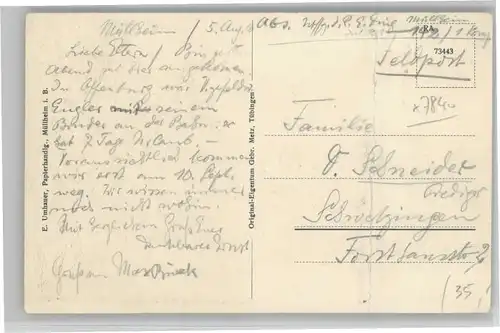 Müllheim / 5. Aug.
Liebe Eltern / Bin gut
Abend gut hier angekommen.
In Offenburg war Uzffz
Engler mit seinem
Bruder an der Bahn.
hat 7 Tage Urlaub. -
Voraussichtlich kommen
wir erst am 10. Sept.
weg. Wir wissen immer
noch nicht wohin.
Mit herzlichem Gruß Euer
dankbarer Ernst
Gruß an
E. Umhauer, Papierhandlg., Müllheim i. B.
Original-Eigentum Gebr. Metz, Tübingen
Abs. Uffz. Müllheim
RA
73443
Feldpost
x7840
Familie
F. Schneider
Prediger
Schwetzingen
Forsthausstr.
(35